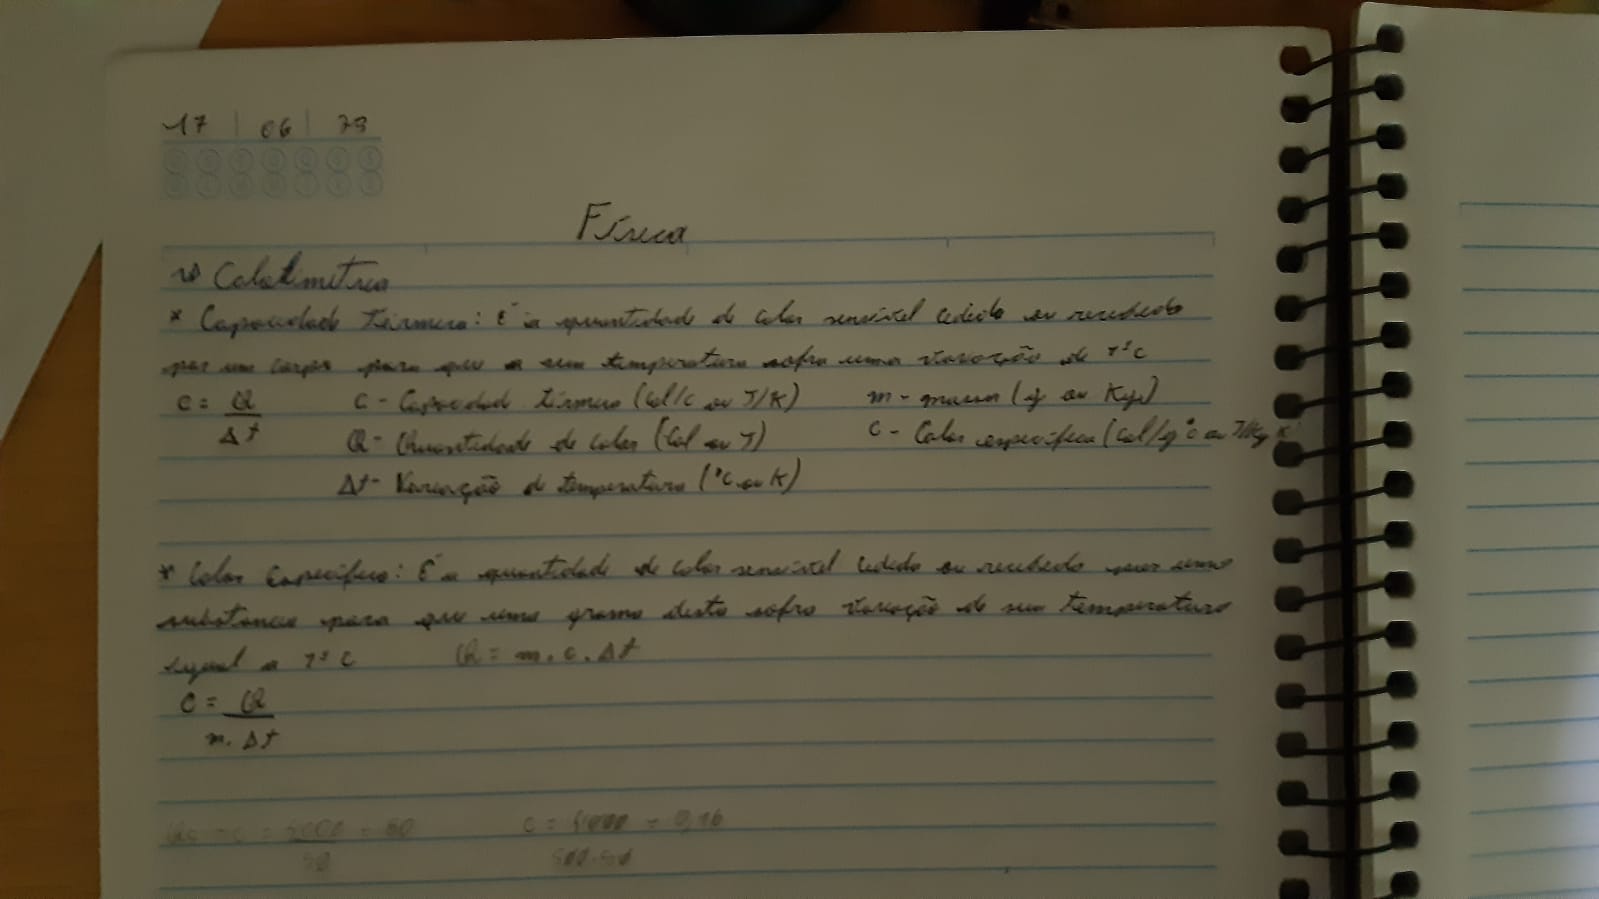 17 | 06 | 79
Física
Calorimetria
* Capacidade Térmica: É a quantidade de calor sensível cedido ou recebido
por um corpo para que a sua temperatura sofra uma variação de 1°C
C = Q C - Capacidade térmica (Cal/c ou J/K) m - massa (g ou Kg)
Δt Q - Quantidade de calor (Cal ou J) C - Calor específico (Cal/g°c ou J/Kg K
Δt - Variação de temperatura (°C ou K)
* Calor Específico: É a quantidade de calor sensível cedido ou recebido por uma
substância para que uma grama desta sofra variação de sua temperatura
igual a 1°C Q = m.c.Δt
C = Q
m.Δt
= 80 C = 4000 = 0,16
50 500.50